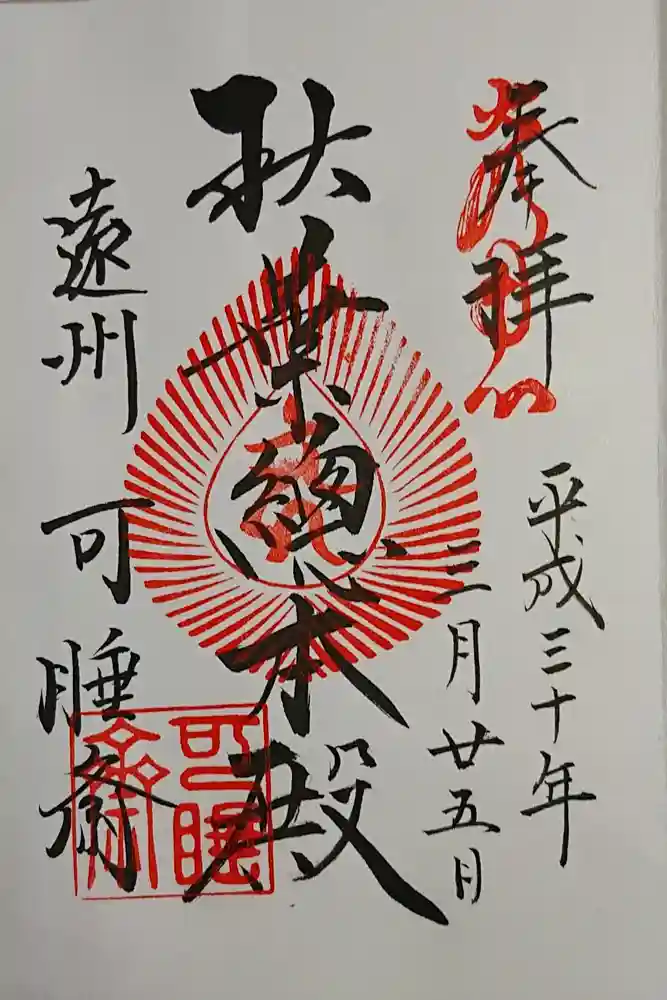 奉拝
平成三十年
三月廿五日
秋葉總本殿
遠州 可睡齋